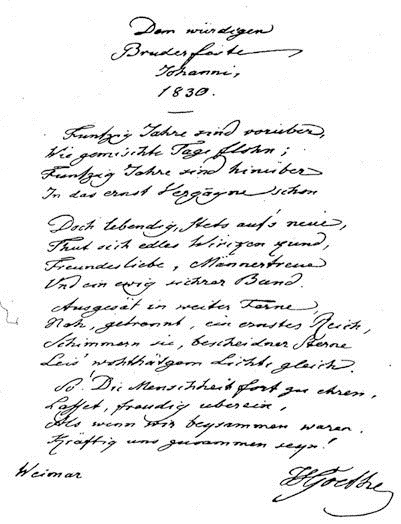 Dem würdigen
Bruderfeste
Johanni,
1830.
Funfzig Jahre sind vorüber,
Wie gemischte Tage flohn;
Funfzig Jahre sind hinüber
In das ernst Vergangne schon
Doch lebendig, stets auf's neue,
Thut sich edles Wirken kund,
Freundesliebe, Männertreue
Und ein ewig sichrer Band.
Ausgesät in weiter Ferne,
Nah, getrennt, ein ernstes Reich,
Schimmern sie, bescheidner Sterne
Leis' wohlthätgem Lichte gleich.
So! Die Menschheit fort zu ehren,
Lasset, freudig ueberein,
Als wenn wir beysammen waren.
Kräftig uns zusammen seyn!
Weimar
JWGoethe